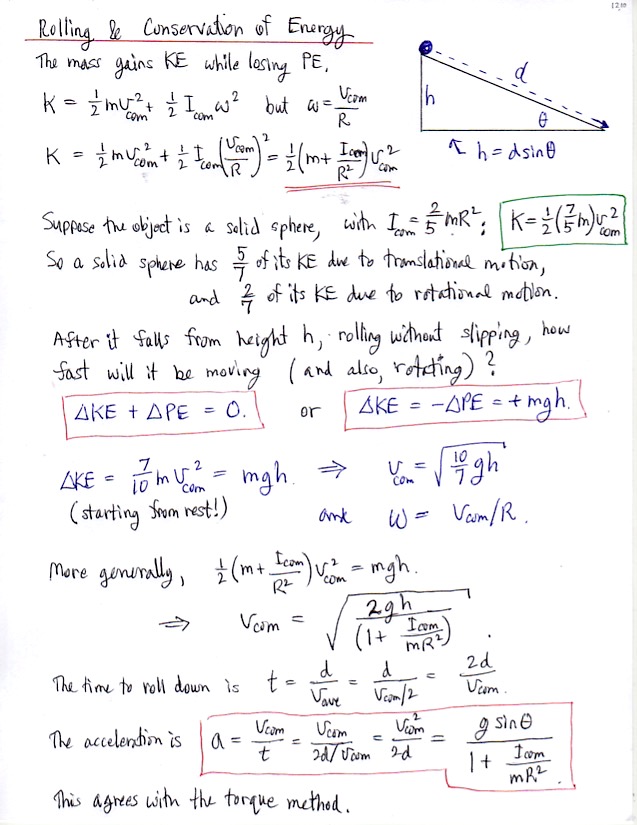 12.10
Rolling & Conservation of Energy
The mass gains KE while losing PE.
K = ½mv²com + ½ Icom ω² but ω = Vcom/R
K = ½mv²com + ½ Icom(Vcom/R)² = ½(m + Icom/R²)v²com
d
h
θ
↖ h = d sinθ
Suppose the object is a solid sphere, with Icom = 2/5 mR²; K = ½(7/5 m)v²com
So a solid sphere has 5/7 of its KE due to translational motion,
and 2/7 of its KE due to rotational motion.
After it falls from height h, rolling without slipping, how
fast will it be moving (and also, rotating)?
ΔKE + ΔPE = 0. or ΔKE = -ΔPE = +mgh.
ΔKE = 7/10 m v²com = mgh. ⇒ vcom = √(10/7 gh)
(starting from rest!) and ω = Vcom/R.
More generally, ½(m + Icom/R²)v²com = mgh.
⇒ Vcom = √(2gh/(1 + Icom/mR²)).
The time to roll down is t = d/Vave = d/(Vcom/2) = 2d/Vcom.
The acceleration is a = Vcom/t = Vcom/(2d/Vcom) = V²com/2d = g sinθ/(1 + Icom/mR²).
This agrees with the torque method.